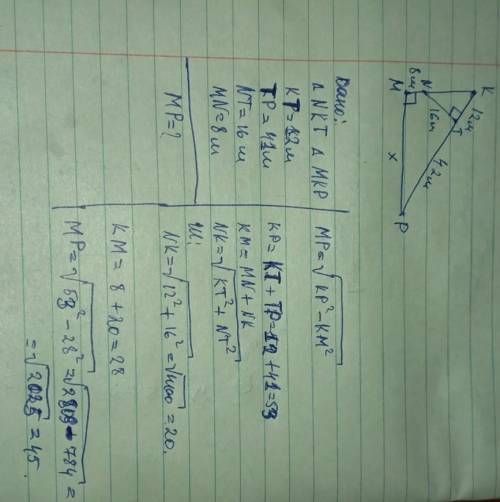 K
12м
T
N
16м
8м
M
42м
x
P
Дано:
Δ NKT Δ MKP
KT=12м
TP=41м
NT=16м
MN=8м
MP=?
MP=√KP²-KM²
KP=KT+TP=12+41=53
KM=MN+NK
NK=√KT²+NT²
NK=√12²+16²=√400=20.
KM=8+20=28
MP=√53²-28²=√2809-784=
=√2025=45.